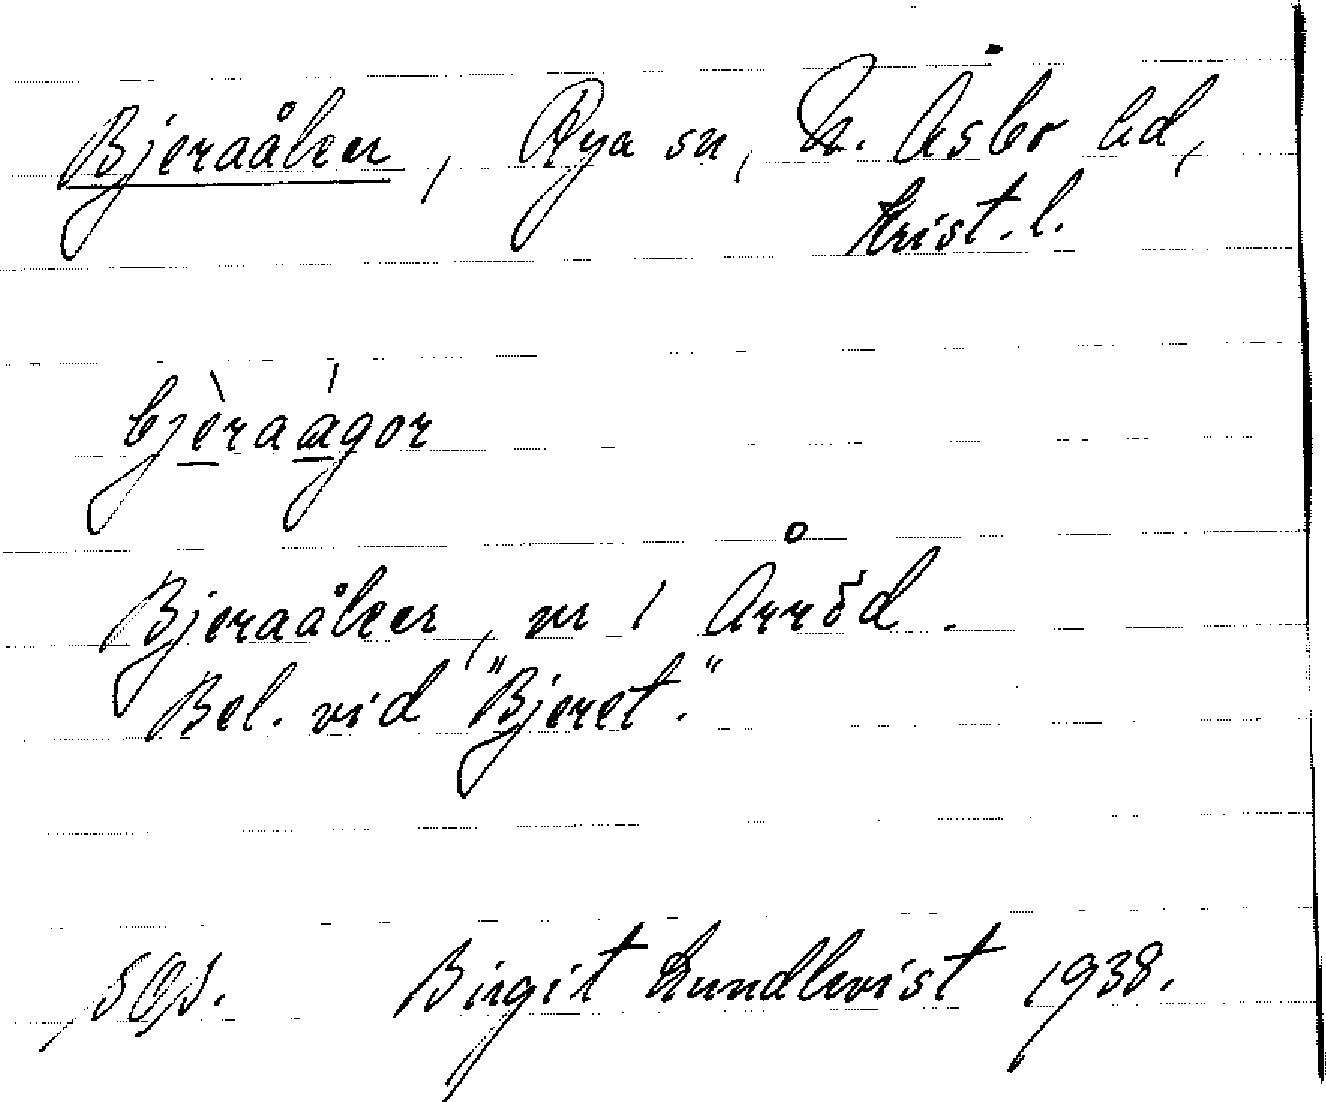 Bjeraåker, Rya sn, N. Åsbo hd,
Krist. l.
bjèraágor
Bjeraåker, vr i Årröd.
Bel. vid "Bjeret".
Birgit Lundkvist 1938.